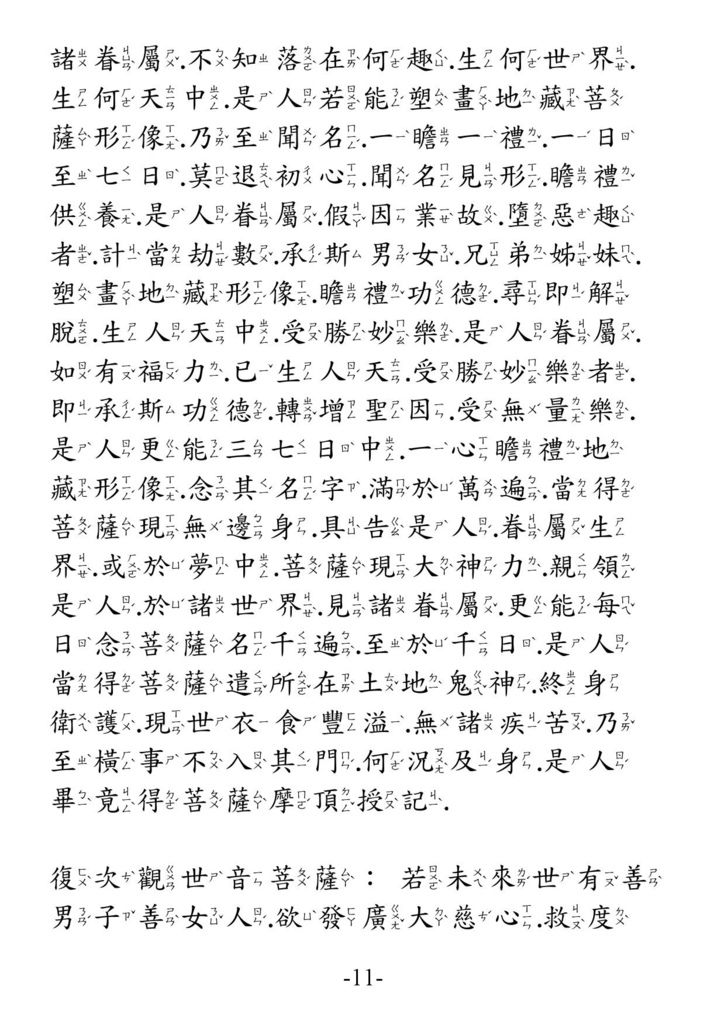 諸眷屬.不知落在何趣.生何世界.
生何天中.是人若能塑畫地藏菩
薩形像.乃至聞名.一瞻一禮.一日
至七日.莫退初心.聞名見形.瞻禮
供養.是人眷屬.假因業故.墮惡趣
者.計當劫數.承斯男女.兄弟姊妹.
塑畫地藏形像.瞻禮功德.尋即解
脫.生人天中.受勝妙樂.是人眷屬.
如有福力.已生人天.受勝妙樂者.
即承斯功德.轉增聖因.受無量樂.
是人更能三七日中.一心瞻禮地
藏形像.念其名字.滿於萬遍.當得
菩薩現無邊身.具告是人.眷屬生
界.或於夢中.菩薩現大神力.親領
是人.於諸世界.見諸眷屬.更能每
日念菩薩名千遍.至於千日.是人
當得菩薩遣所在土地鬼神.終身
衛護.現世衣食豐溢.無諸疾苦.乃
至橫事不入其門.何況及身.是人
畢竟得菩薩摩頂授記.
復次觀世音菩薩： 若未來世有善
男子善女人.欲發廣大慈心.救度
-11-